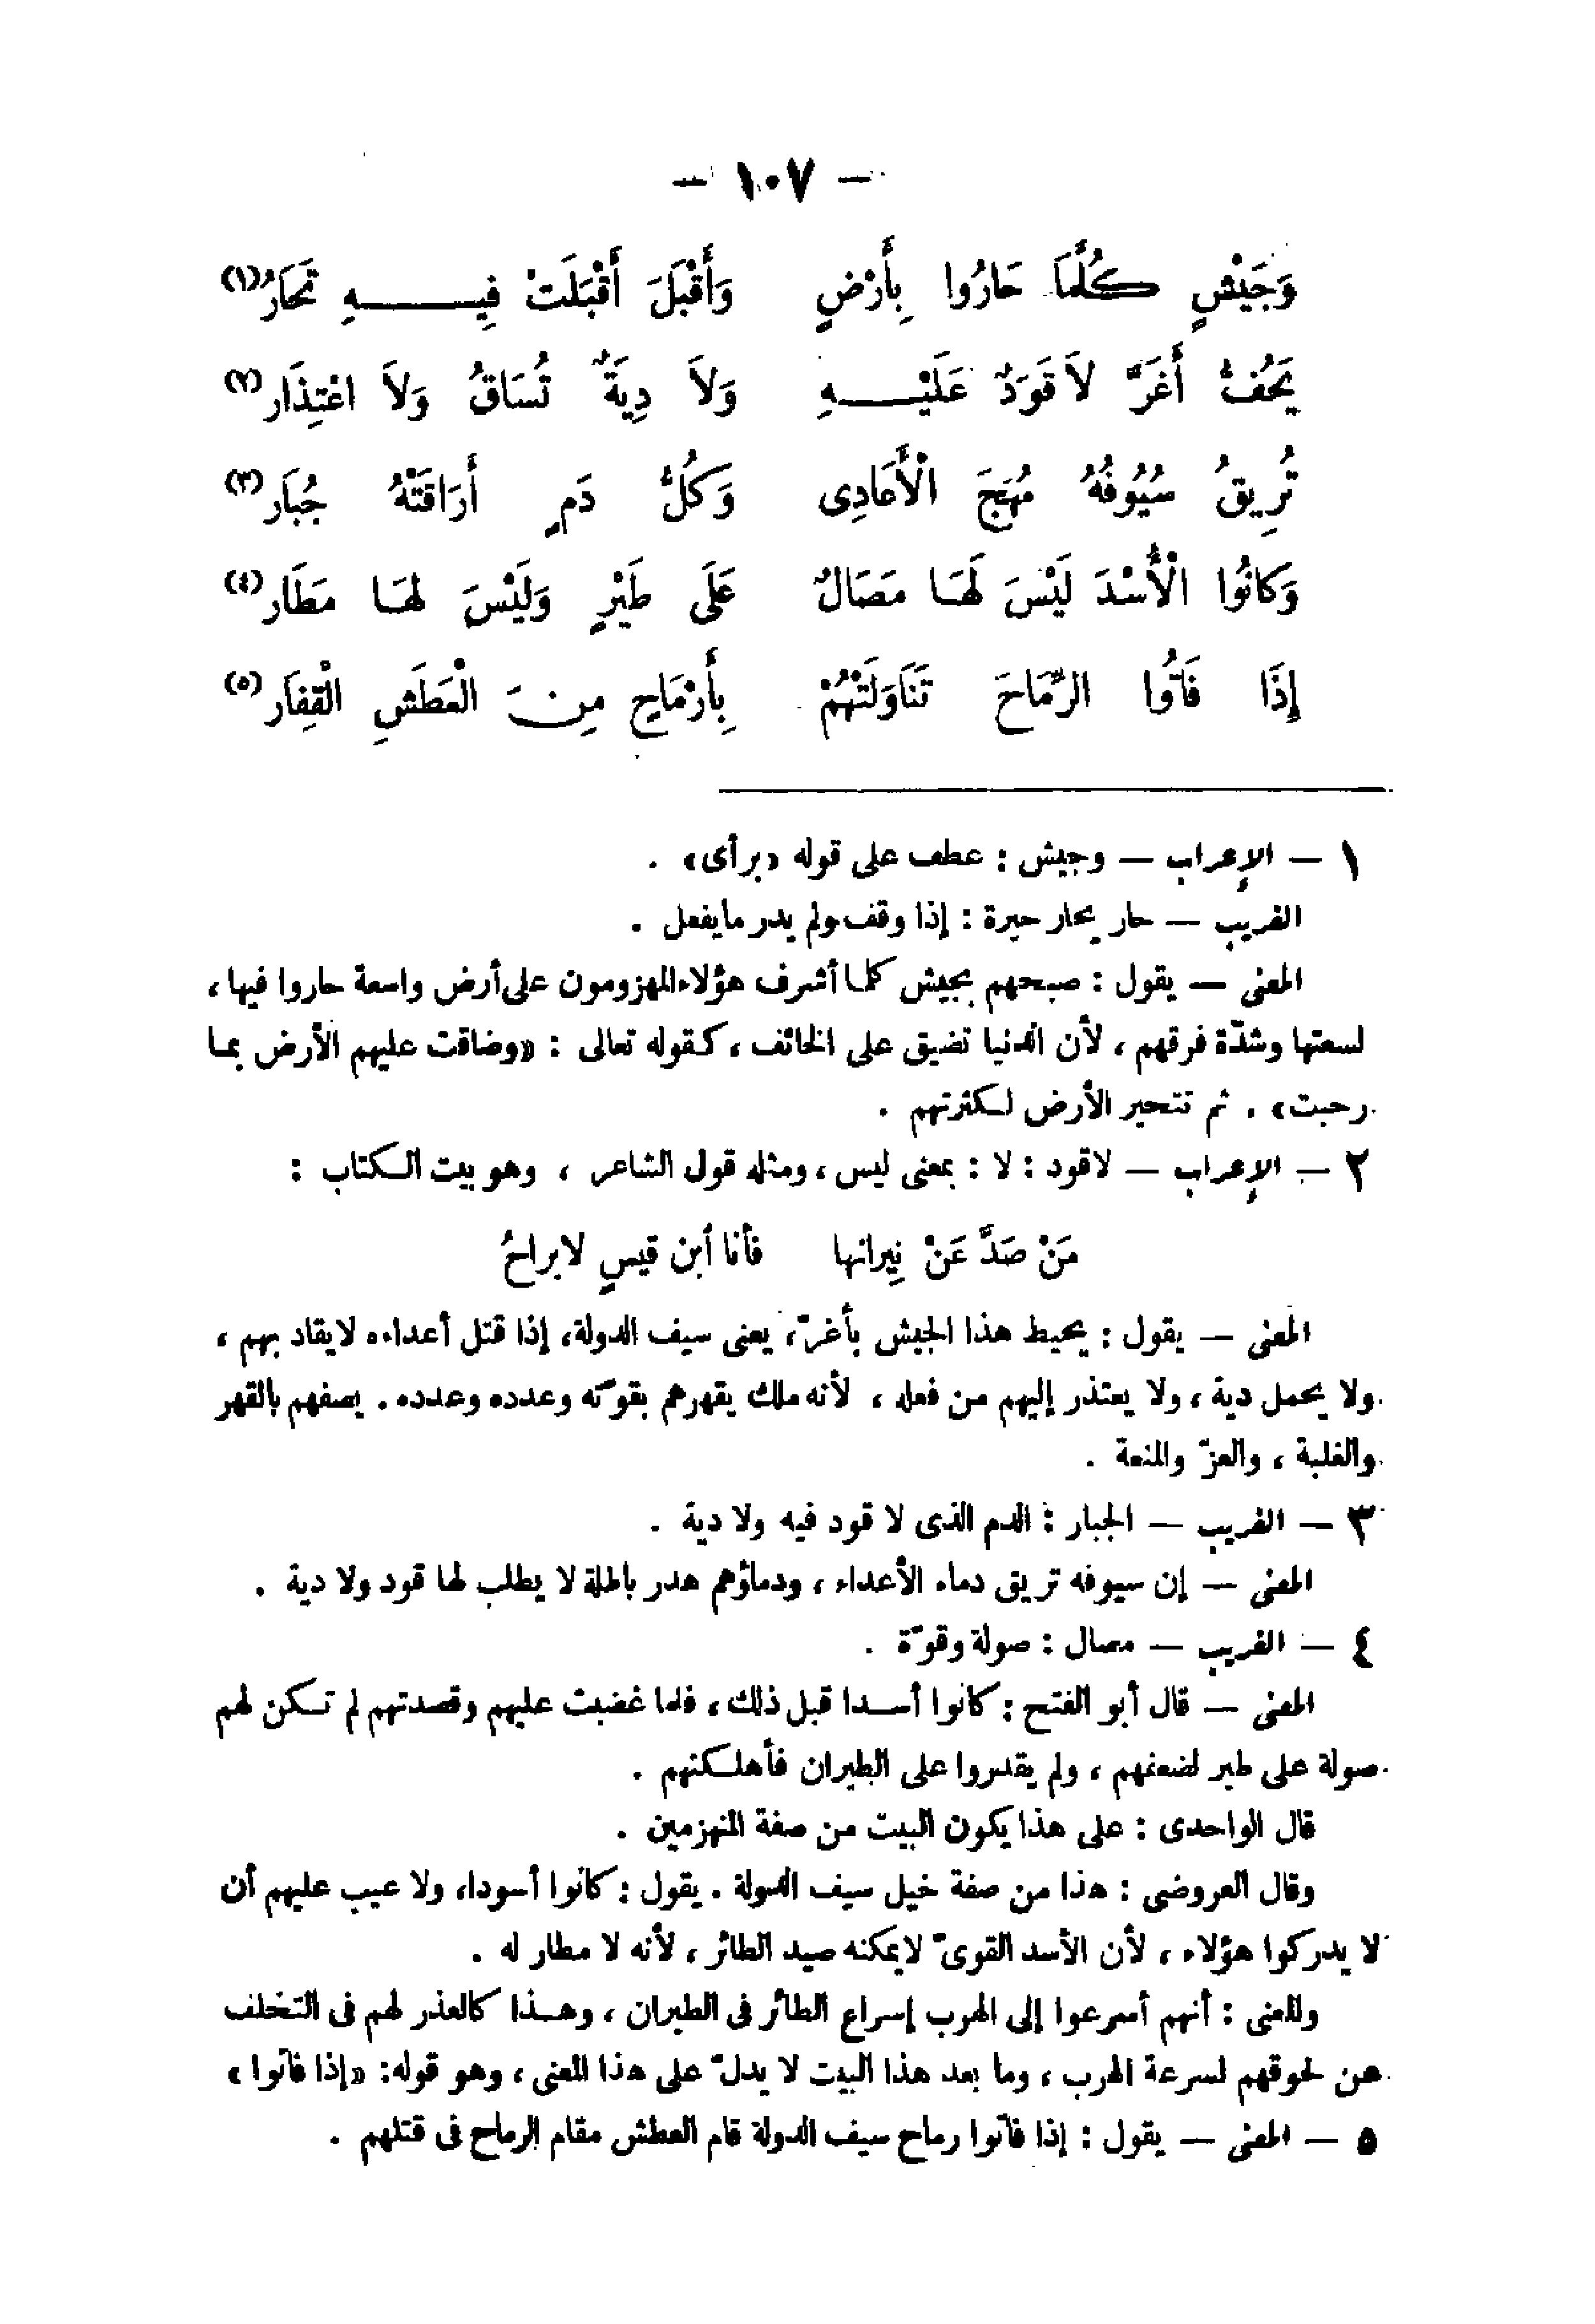 — ١٠٧ —
وَجَيْشٍ كُلَّمَا حَارُوا بِأَرْضٍ وَأَقْبَلَ أَقْبَلَتْ فِيهِ تَحَارُ (١)
يَحُفُّ أَغَرَّ لاَ قَوَدٌ عَلَيْهِ وَلاَ دِيَةٌ تُسَاقُ وَلاَ اعْتِذَار (٢)
تُرِيقُ سُيُوفُهُ مُهَجَ الْأَعَادِى وَكُلُّ دَمٍ أَرَاقَتْهُ جُبَار (٣)
وَكَانُوا الْأُسْدَ لَيْسَ لَهَا مَصَالٌ عَلَى طَيْرٍ وَلَيْسَ لهَا مَطَار (٤)
إِذَا فَاتُوا الرِّمَاحَ تَنَاوَلَتْهُمْ بِأَرْمَاحٍ مِنَ الْعَطَشِ الْقِفَار (٥)
١ — الإعراب — وجيش : عطف على قوله «برأى» .
الغريب — حار يحار حيرة : إذا وقف ولم يدر ما يفعل .
المعنى — يقول : صبحهم بجيش كلما أشرف هؤلاء المهزومون على أرض واسعة حاروا فيها ،
لسعتها وشدّة فرقهم ، لأن الدنيا تضيق على الخائف ، كقوله تعالى : «وضاقت عليهم الأرض بما
رحبت» . ثم تتحير الأرض لكثرتهم .
٢ — الإعراب — لاقود : لا : بمعنى ليس ، ومثله قول الشاعر ، وهو بيت الكتاب :
مَنْ صَدَّ عَنْ نِيرانها فأنا أبن قيسٍ لابراحُ
المعنى — يقول : يحيط هذا الجيش بأغرّ ، يعنى سيف الدولة ، إذا قتل أعداءه لايقاد بهم ،
ولا يحمل دية ، ولا يعتذر إليهم من فعله ، لأنه ملك يقهرهم بقوّته وعدده وعدده . يصفهم بالقهر
والغلبة ، والعزّ والمنعة .
٣ — الغريب — الجبار : الدم الذى لا قود فيه ولا دية .
المعنى — إن سيوفه تريق دماء الأعداء ، ودماؤهم هدر باطلة لا يطلب لها قود ولا دية .
٤ — الغريب — مصال : صولة وقوّة .
المعنى — قال أبو الفتح : كانوا أسدا قبل ذلك ، فلما غضبت عليهم وقصدتهم لم تكن لهم
صولة على طير لضعفهم ، ولم يقدروا على الطيران فأهلكتهم .
قال الواحدى : على هذا يكون البيت من صفة المنهزمين .
وقال العروضى : هذا من صفة خيل سيف الدولة . يقول : كانوا أسودا ، ولا عيب عليهم أن
لا يدركوا هؤلاء ، لأن الأسد القوىّ لايمكنه صيد الطائر ، لأنه لا مطار له .
والمعنى : أنهم أسرعوا إلى الهرب إسراع الطائر فى الطيران ، وهذا كالعذر لهم فى التخلف
عن لحوقهم لسرعة الهرب ، وما بعد هذا البيت لا يدلّ على هذا المعنى ، وهو قوله : «إذا فاتوا»
٥ — المعنى — يقول : إذا فاتوا رماح سيف الدولة قام العطش مقام الرماح فى قتلهم .